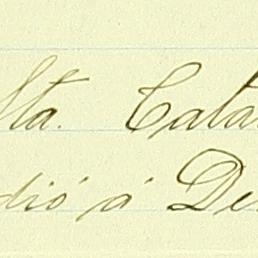 Sta. Cata
dió á De